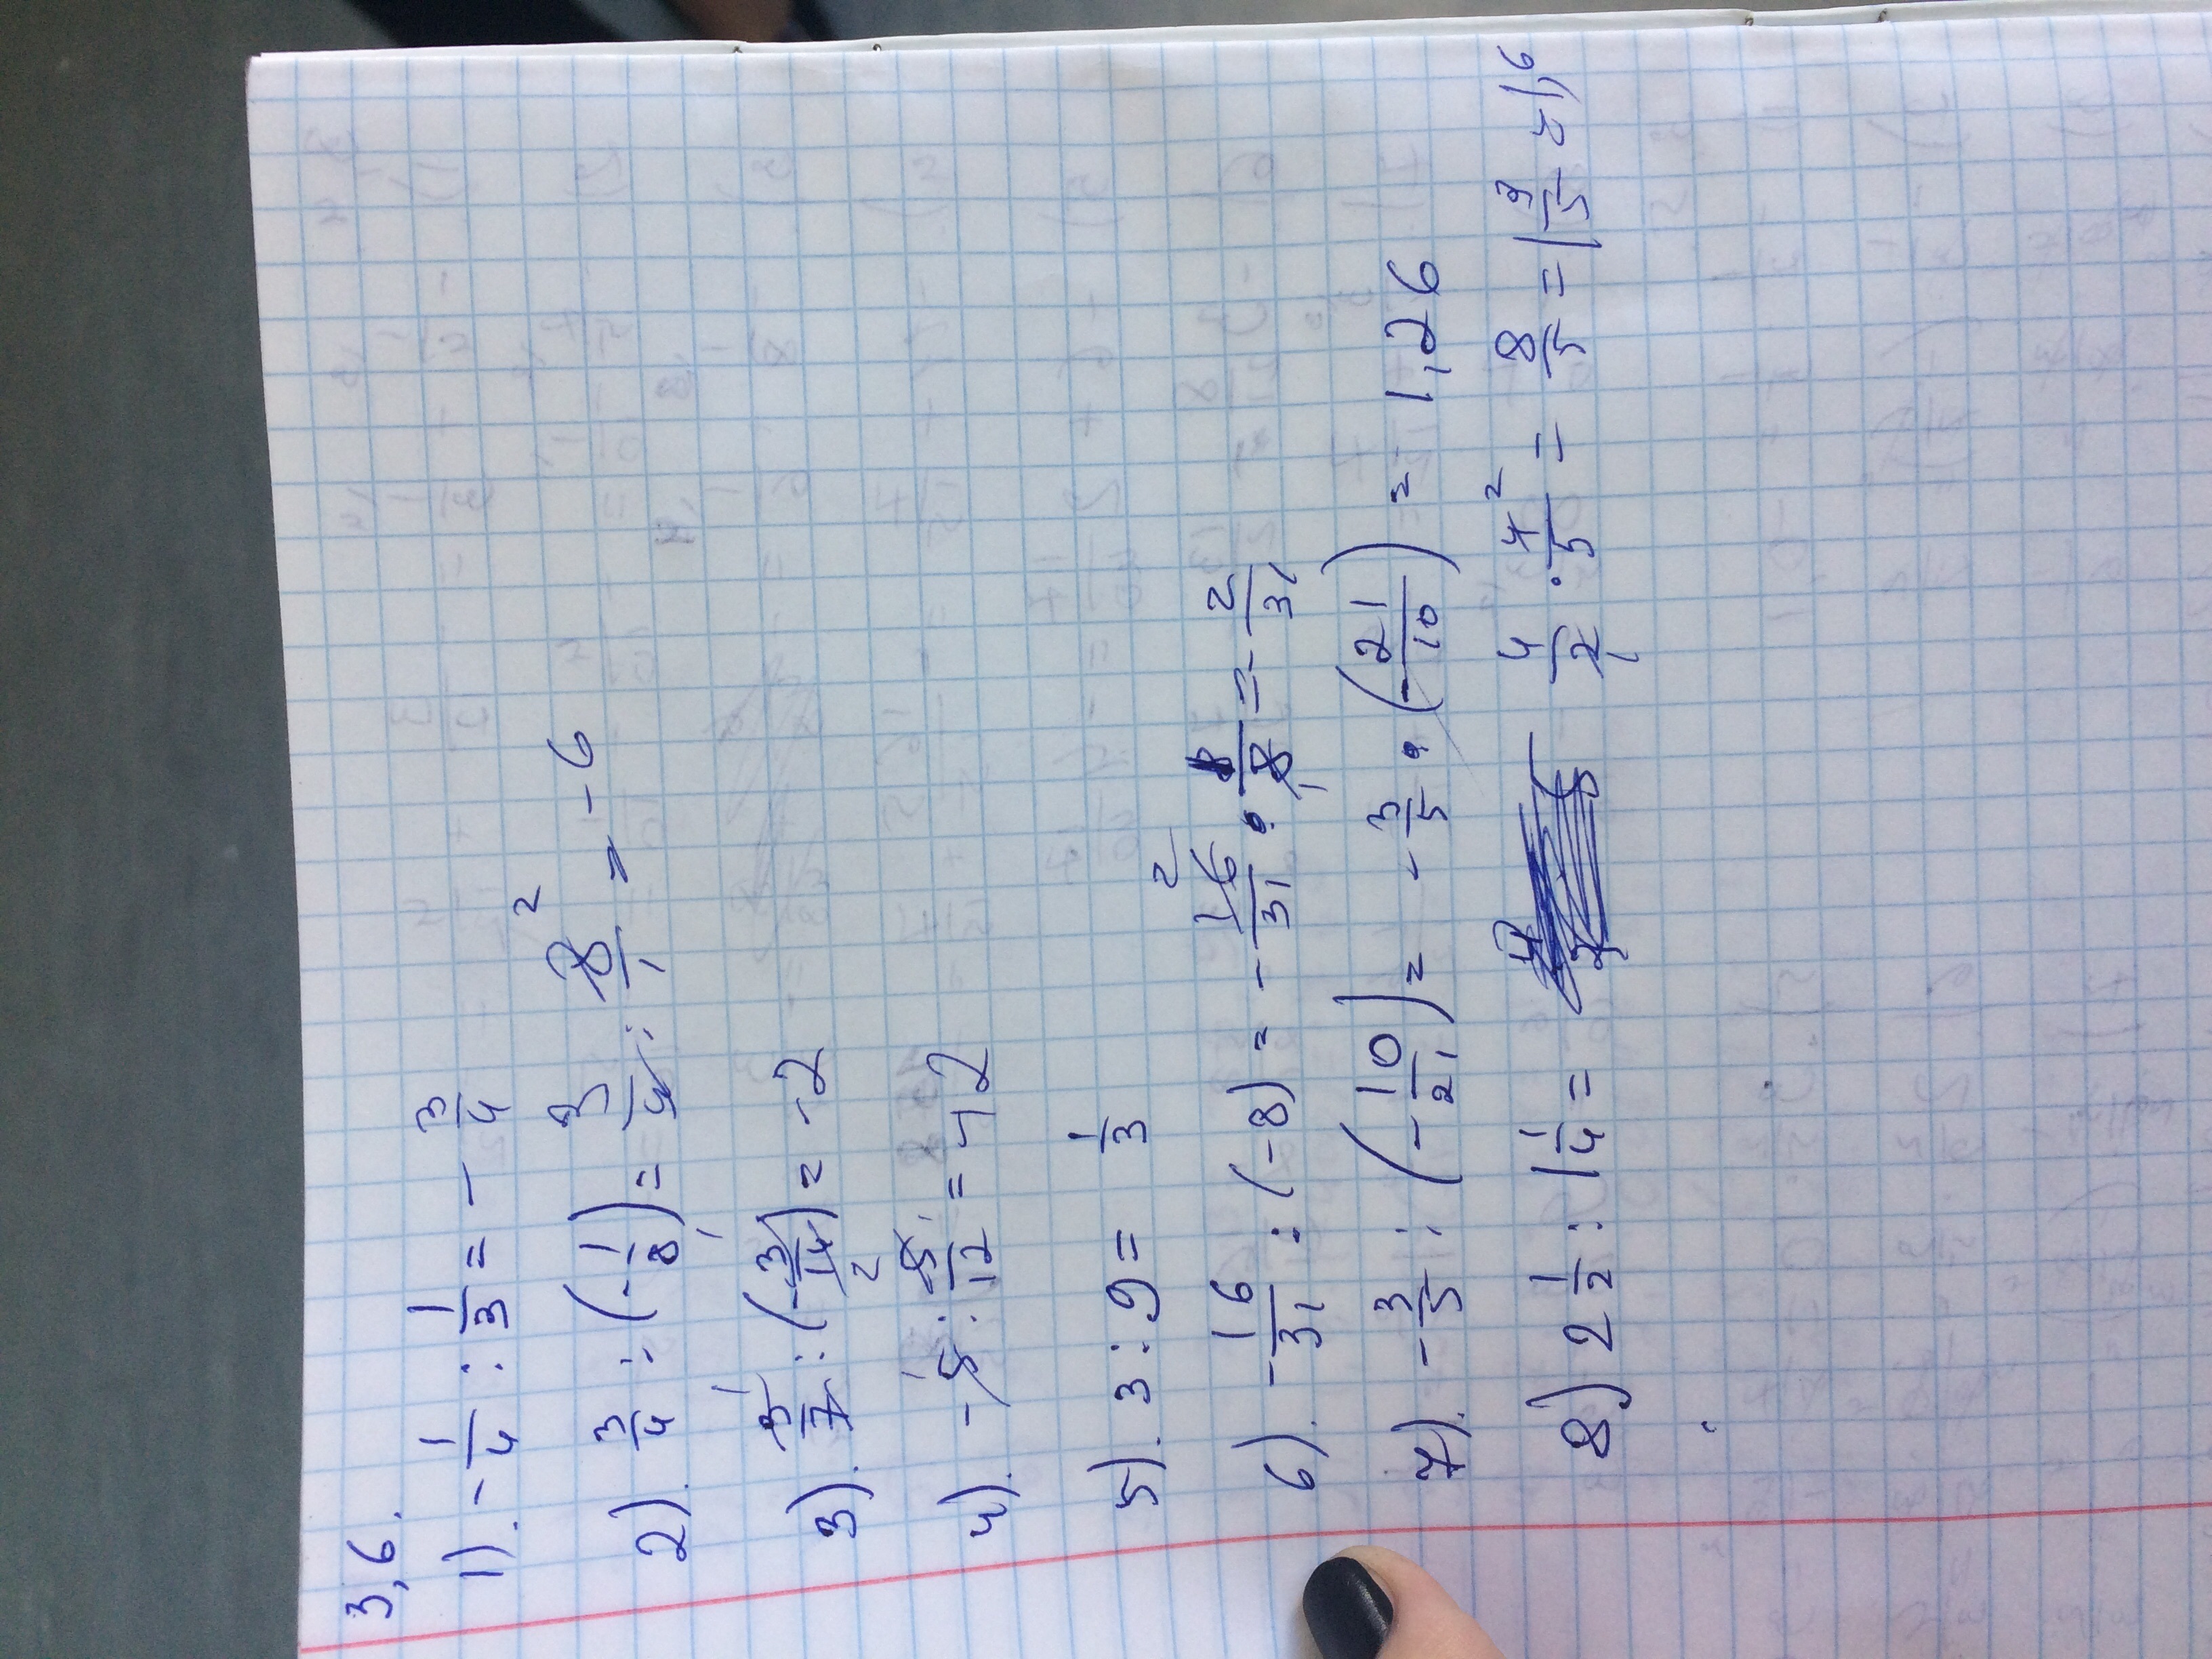 3,6.
1). -1/4 : 1/3 = - 3/4
2). 3/4 : (-1/8) = 3/4 : 8/1 2 = -6
3). 3/7 1 : (-3/14 2) = -2
4). -5 1 : 5/12 = 12
5). 3 : 9 = 1/3
6). -16/31 : (-8) = -16/31 2 · 8/8 1 = - 2/31
7). -3/5 : (-10/21) = -3/5 · (-21/10) = 1,26
8) 2 1/2 : 1 1/4 = 4/2 1 · 4/5 2 = 8/5 = 1 3/5 = 1,6